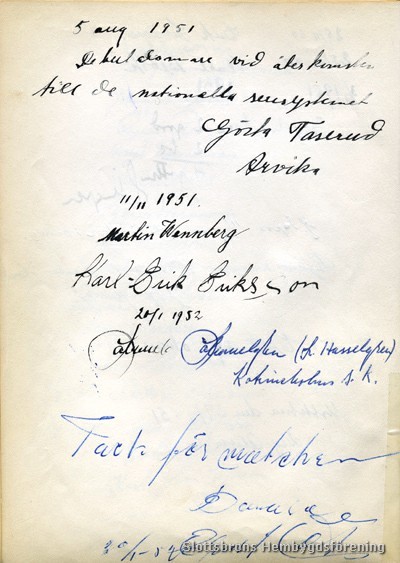 5 aug 1951
Debutdomare vid återkomsten
till de nationella seriesystemet
Gösta Taserud
Arvika
11/11 1951.
Martin Wennberg
Karl-Erik Eriksson
20/1 1952
(L. Hasselgren)
S.K.
Tack för matchen
Slottsbrons Hembygdsförening